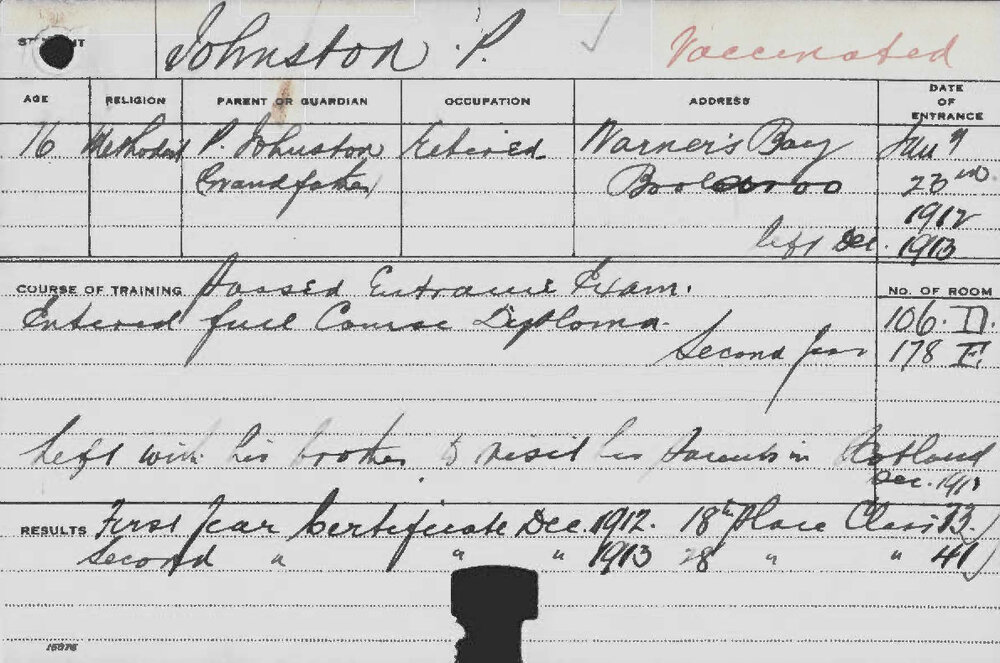 STUDENT Johnston P. Vaccinated
AGE RELIGION PARENT OR GUARDIAN OCCUPATION ADDRESS DATE OF ENTRANCE
16 Methodist P. Johnston Retired Warner's Bay
Grandfather 23rd
1912
left Dec. 1913
COURSE OF TRAINING Passed Entrance Exam. NO. OF ROOM
Entered full Course Diploma. 106. D.
Second Year 178 E.
Left with his brother to visit his Parents in
Dec. 1913
RESULTS First Year Certificate Dec. 1912. 18th Place Class 73.
Second " " " 1913 28 " " 41
15076